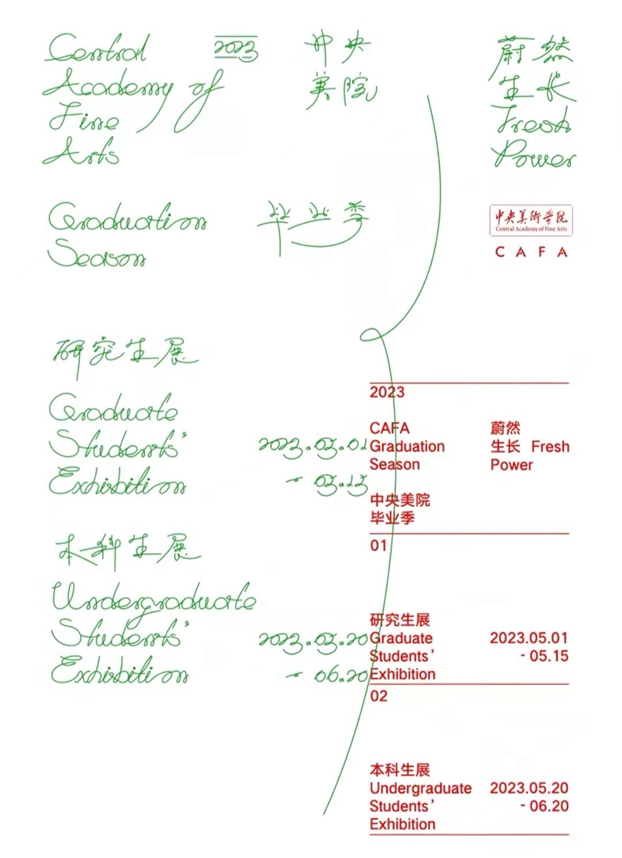 Central
Academy of
Fine
Arts
2023
中央
美院
蔚然
生长
Fresh
Power
Graduation
Season
毕业季
中央美術学院
Central Academy of Fine Arts
CAFA
研究生展
Graduate
Students'
Exhibition
2023.05.01
- 05.15
本科生展
Undergraduate
Students'
Exhibition
2023.05.20
- 06.20
2023
CAFA
Graduation
Season
中央美院
毕业季
蔚然
生长 Fresh
Power
01
研究生展
Graduate
Students'
Exhibition
2023.05.01
- 05.15
02
本科生展
Undergraduate
Students'
Exhibition
2023.05.20
- 06.20